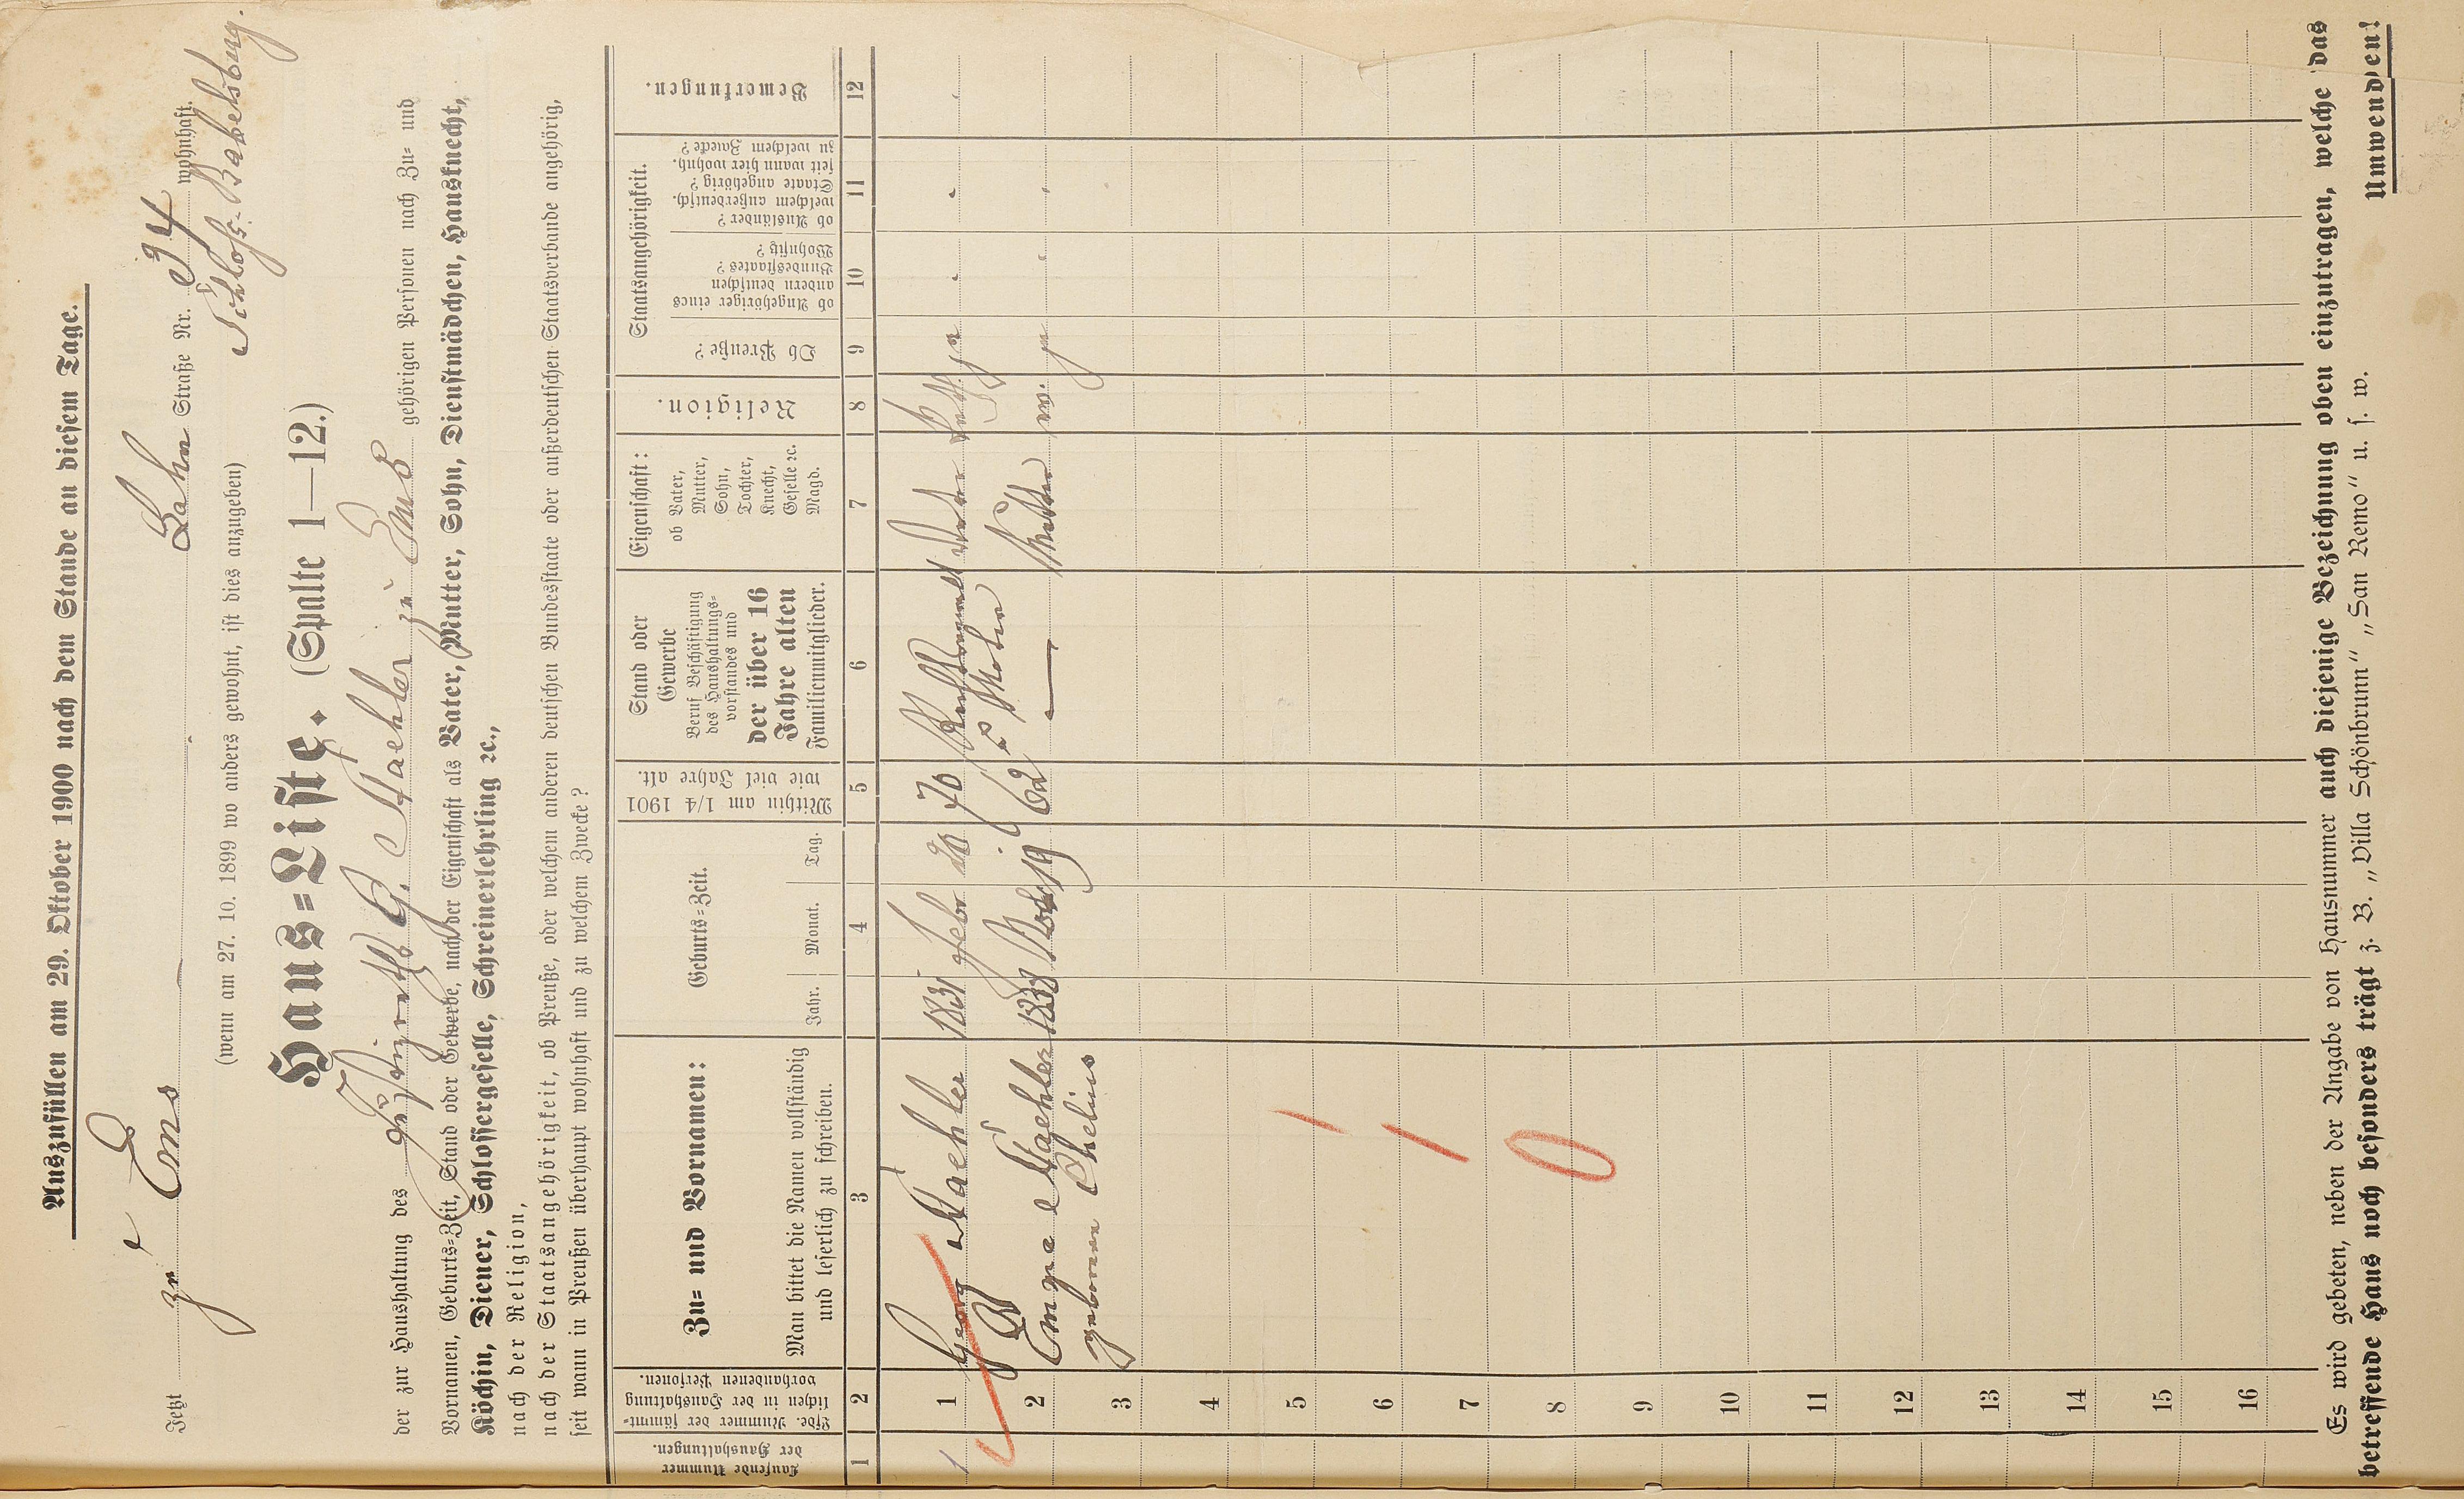 Auszufüllen am 29. Oktober 1900 nach dem Stande an diesem Tage.
Jetzt zu Ems Bahn Straße Nr. 34 wohnhaft.
(wenn am 27. 10. 1899 wo anders gewohnt, ist dies anzugeben) Schloß-Babelsberg.
Haus-Liste. (Spalte 1—12.)
der zur Haushaltung des G. Staehler zu Ems gehörigen Personen nach Zu- und
Vornamen, Geburts-Zeit, Stand oder Gewerbe, nach der Eigenschaft als Vater, Mutter, Sohn, Dienstmädchen, Hausknecht,
Köchin, Diener, Schlossergeselle, Schreinerlehrling ꝛc.,
nach der Religion,
nach der Staatsangehörigkeit, ob Preuße, oder welchem anderen deutschen Bundesstaate oder außerdeutschen Staatsverbande angehörig,
seit wann in Preußen überhaupt wohnhaft und zu welchem Zwecke?
Laufende Nummer der Haushaltungen.
Lfde. Nummer der sämmtlichen in der Haushaltung vorhandenen Personen.
Zu- und Vornamen:
Man bittet die Namen vollständig
und leserlich zu schreiben.
Geburts-Zeit.
Jahr. Monat. Tag.
Mithin am 1/4 1901
wie viel Jahre alt.
Stand oder
Gewerbe
Beruf Beschäftigung
des Haushaltungs-
vorstandes und
der über 16
Jahre alten
Familienmitglieder.
Eigenschaft:
ob Vater,
Mutter,
Sohn,
Tochter,
Knecht,
Geselle ꝛc.
Magd.
Religion.
Staatsangehörigkeit.
Ob Preuße?
ob Angehöriger eines
andern deutschen
Bundesstaates?
Wohnsitz?
ob Ausländer?
welchem außerdeutsch.
Staate angehörig?
seit wann hier wohnh.
zu welchem Zwecke?
Bemerkungen.
1 2 3 4 5 6 7 8 9 10 11 12
1 1 Georg Staehler 1831 Febr 20 70 Vater ja
2 Emma Staehler 1838 Nov 19 62 — Mutter w. ja
3 geborene Chelius
4
5
6
7
8
9
10
11
12
13
14
15
16
Es wird gebeten, neben der Angabe von Hausnummer auch diejenige Bezeichnung oben einzutragen, welche das
betreffende Haus noch besonders trägt z. B. „Villa Schönbrunn“ „San Remo“ u. s. w.
Umwenden!